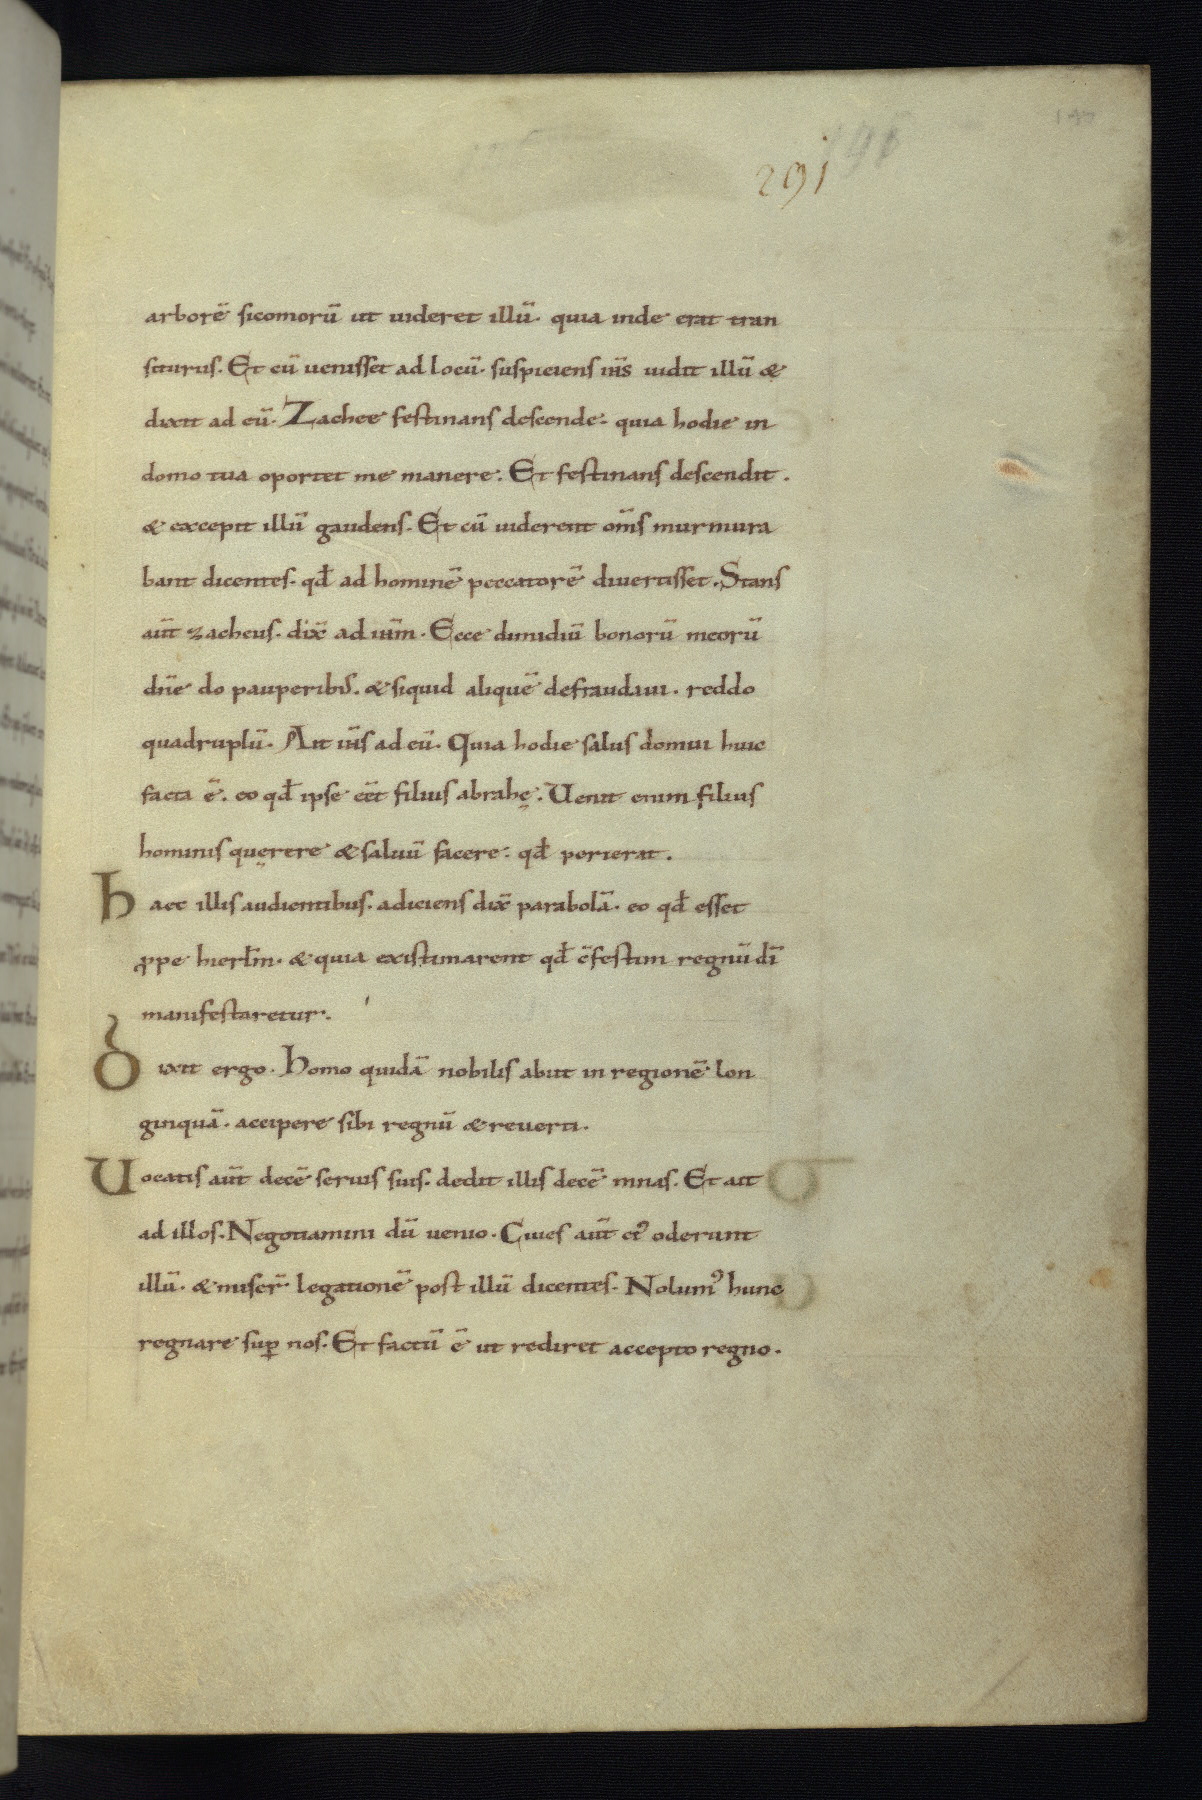 291
arborē sicomorū ut uideret illū· quia inde erat tran
siturus. Et cū uenisset ad locū· suspiciens ih̄s uidit illū &
dixit ad eū· Zachee festinans descende· quia hodie in
domo tua oportet me manere· Et festinans descendit·
& excepit illū gaudens. Et cū uiderent om̄s murmura
bant dicentes· qđ ad hominē peccatorē diuertisset. Stans
aūt zacheus· dix̄ ad ih̄m· Ecce dimidiū bonorū meorū
dn̄e do pauperib; & siquid aliquē defraudaui· reddo
quadruplū. Ait ih̄s ad eū. Quia hodie salus domui huic
facta ē· eo qđ ipse eēt filius abrahę. Uenit enim filius
hominis quęrere & saluū facere· qđ perierat.
Haec illis audientibus· adiciens dix̄ parabolā· eo qđ esset
ꝓpe hierlm̄· & quia existimarent qđ cōfestim regnū dī
manifestaretur·
Dixit ergo· Homo quidā nobilis abiit in regionē lon
ginquā· accipere sibi regnū & reuerti·
Uocatis aūt decē seruis suis· dedit illis decē mnas. Et ait
ad illos· Negotiamini dū uenio· Ciues aūt ei᾽ oderunt
illū· & miser̄ legationē post illū dicentes· Nolum᾽ hunc
regnare sup̄ nos· Et factū ē ut rediret accepto regno·